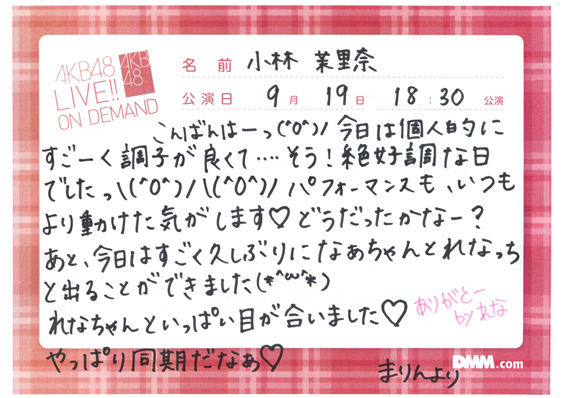 AKB48
LIVE!!
ON DEMAND
AKB
48
名前 小林 茉里奈
公演日 9月 19日 18:30 公演
こんばんはーっ(^O^)ノ今日は個人的に
すごーく調子が良くて‥‥そう！絶好調な日
でしたっ\(^O^)/\(^O^)/ パフォーマンスも、いつも
より動けた気がします♡どうだったかなー？
あと、今日はすごく久しぶりになぁちゃんとれなっち
と出ることができました(*^ω^*)
れなちゃんといっぱい目が合いました♡
ありがとー
by れな
やっぱり同期だなぁ♡
まりんより
DMM.com